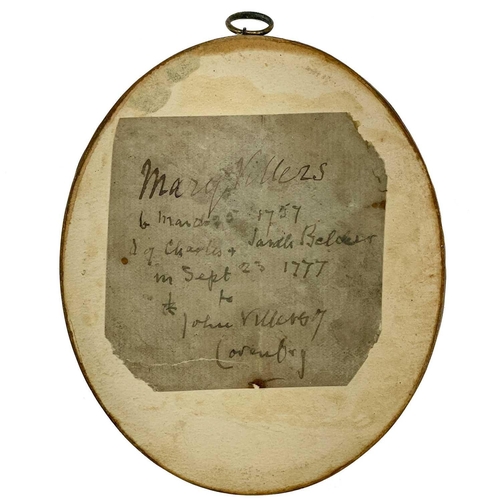 Mary Villers
b March 20 1757
d of Charles + Sarah Belcher
m Sept 23 1777
to
John Villers of
Coventry